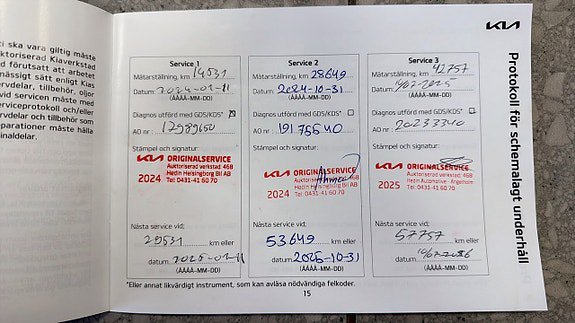 KIA
Protokoll för schemalagt underhåll
ska vara giltig måste
ktoriserad Kiaverkstad
d förutsatt att arbetet
mässigt sätt enligt Kias
rvdelar, tillbehör, oljor
vid servicen måste med
serviceprotokoll och/eller
rvdelar och tillbehör som
parationer måste hålla
inaldelar.
Service 1
Mätarställning, km 14531
Datum: 2024-02-11
(ÅÅÅÅ-MM-DD)
Diagnos utförd med GDS/KDS*
AO nr: 12989650
Stämpel och signatur:
KIA ORIGINALSERVICE
Auktoriserad verkstad: 468
Hedin Helsingborg Bil AB
2024 Tel: 0431-41 60 70
Nästa service vid;
29531 km eller
datum: 2025-02-11
(ÅÅÅÅ-MM-DD)
Service 2
Mätarställning, km 28649
Datum: 2024-10-31
(ÅÅÅÅ-MM-DD)
Diagnos utförd med GDS/KDS*
AO nr: 19175540
Stämpel och signatur:
KIA ORIGINALSERVICE
Auktoriserad verkstad: 468
Hedin Helsingborg Bil AB
2024 Tel: 0431-41 60 70
Nästa service vid;
53649 km eller
datum: 2026-10-31
(ÅÅÅÅ-MM-DD)
Service 3
Mätarställning, km 42757
Datum:
(ÅÅÅÅ-MM-DD)
Diagnos utförd med GDS/KDS*
AO nr: 20233340
Stämpel och signatur:
KIA ORIGINALSERVICE
Auktoriserad verkstad: 468
Hedin Automotive
2025 Tel: 0431-41 60 70
Nästa service vid;
57757 km eller
datum:
(ÅÅÅÅ-MM-DD)
*Eller annat likvärdigt instrument, som kan avläsa nödvändiga felkoder.
15